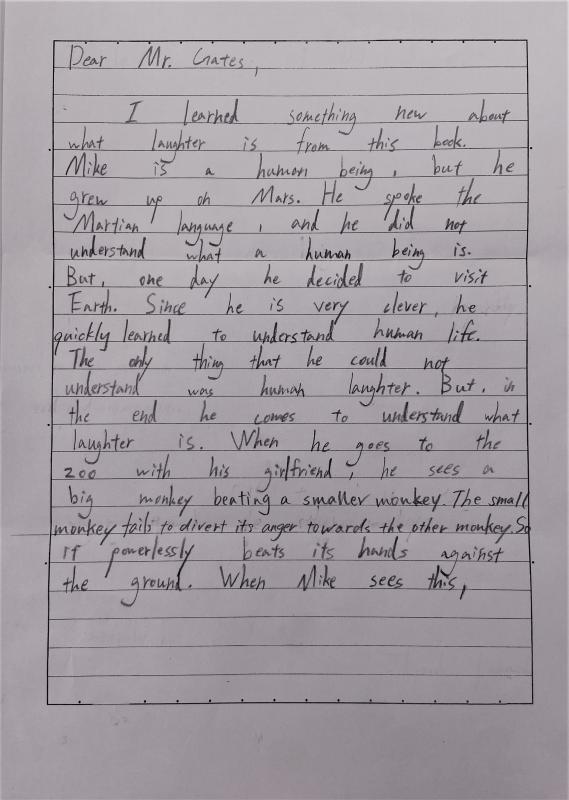 Dear Mr. Gates,
I learned something new about
what laughter is from this book.
Mike is a human being, but he
grew up on Mars. He spoke the
Martian language, and he did not
understand what a human being is.
But, one day he decided to visit
Earth. Since he is very clever, he
quickly learned to understand human life.
The only thing that he could not
understand was human laughter. But, in
the end he comes to understand what
laughter is. When he goes to the
zoo with his girlfriend, he sees a
big monkey beating a smaller monkey. The small
monkey fails to divert its anger towards the other monkey. So
it powerlessly beats its hands against
the ground. When Mike sees this,